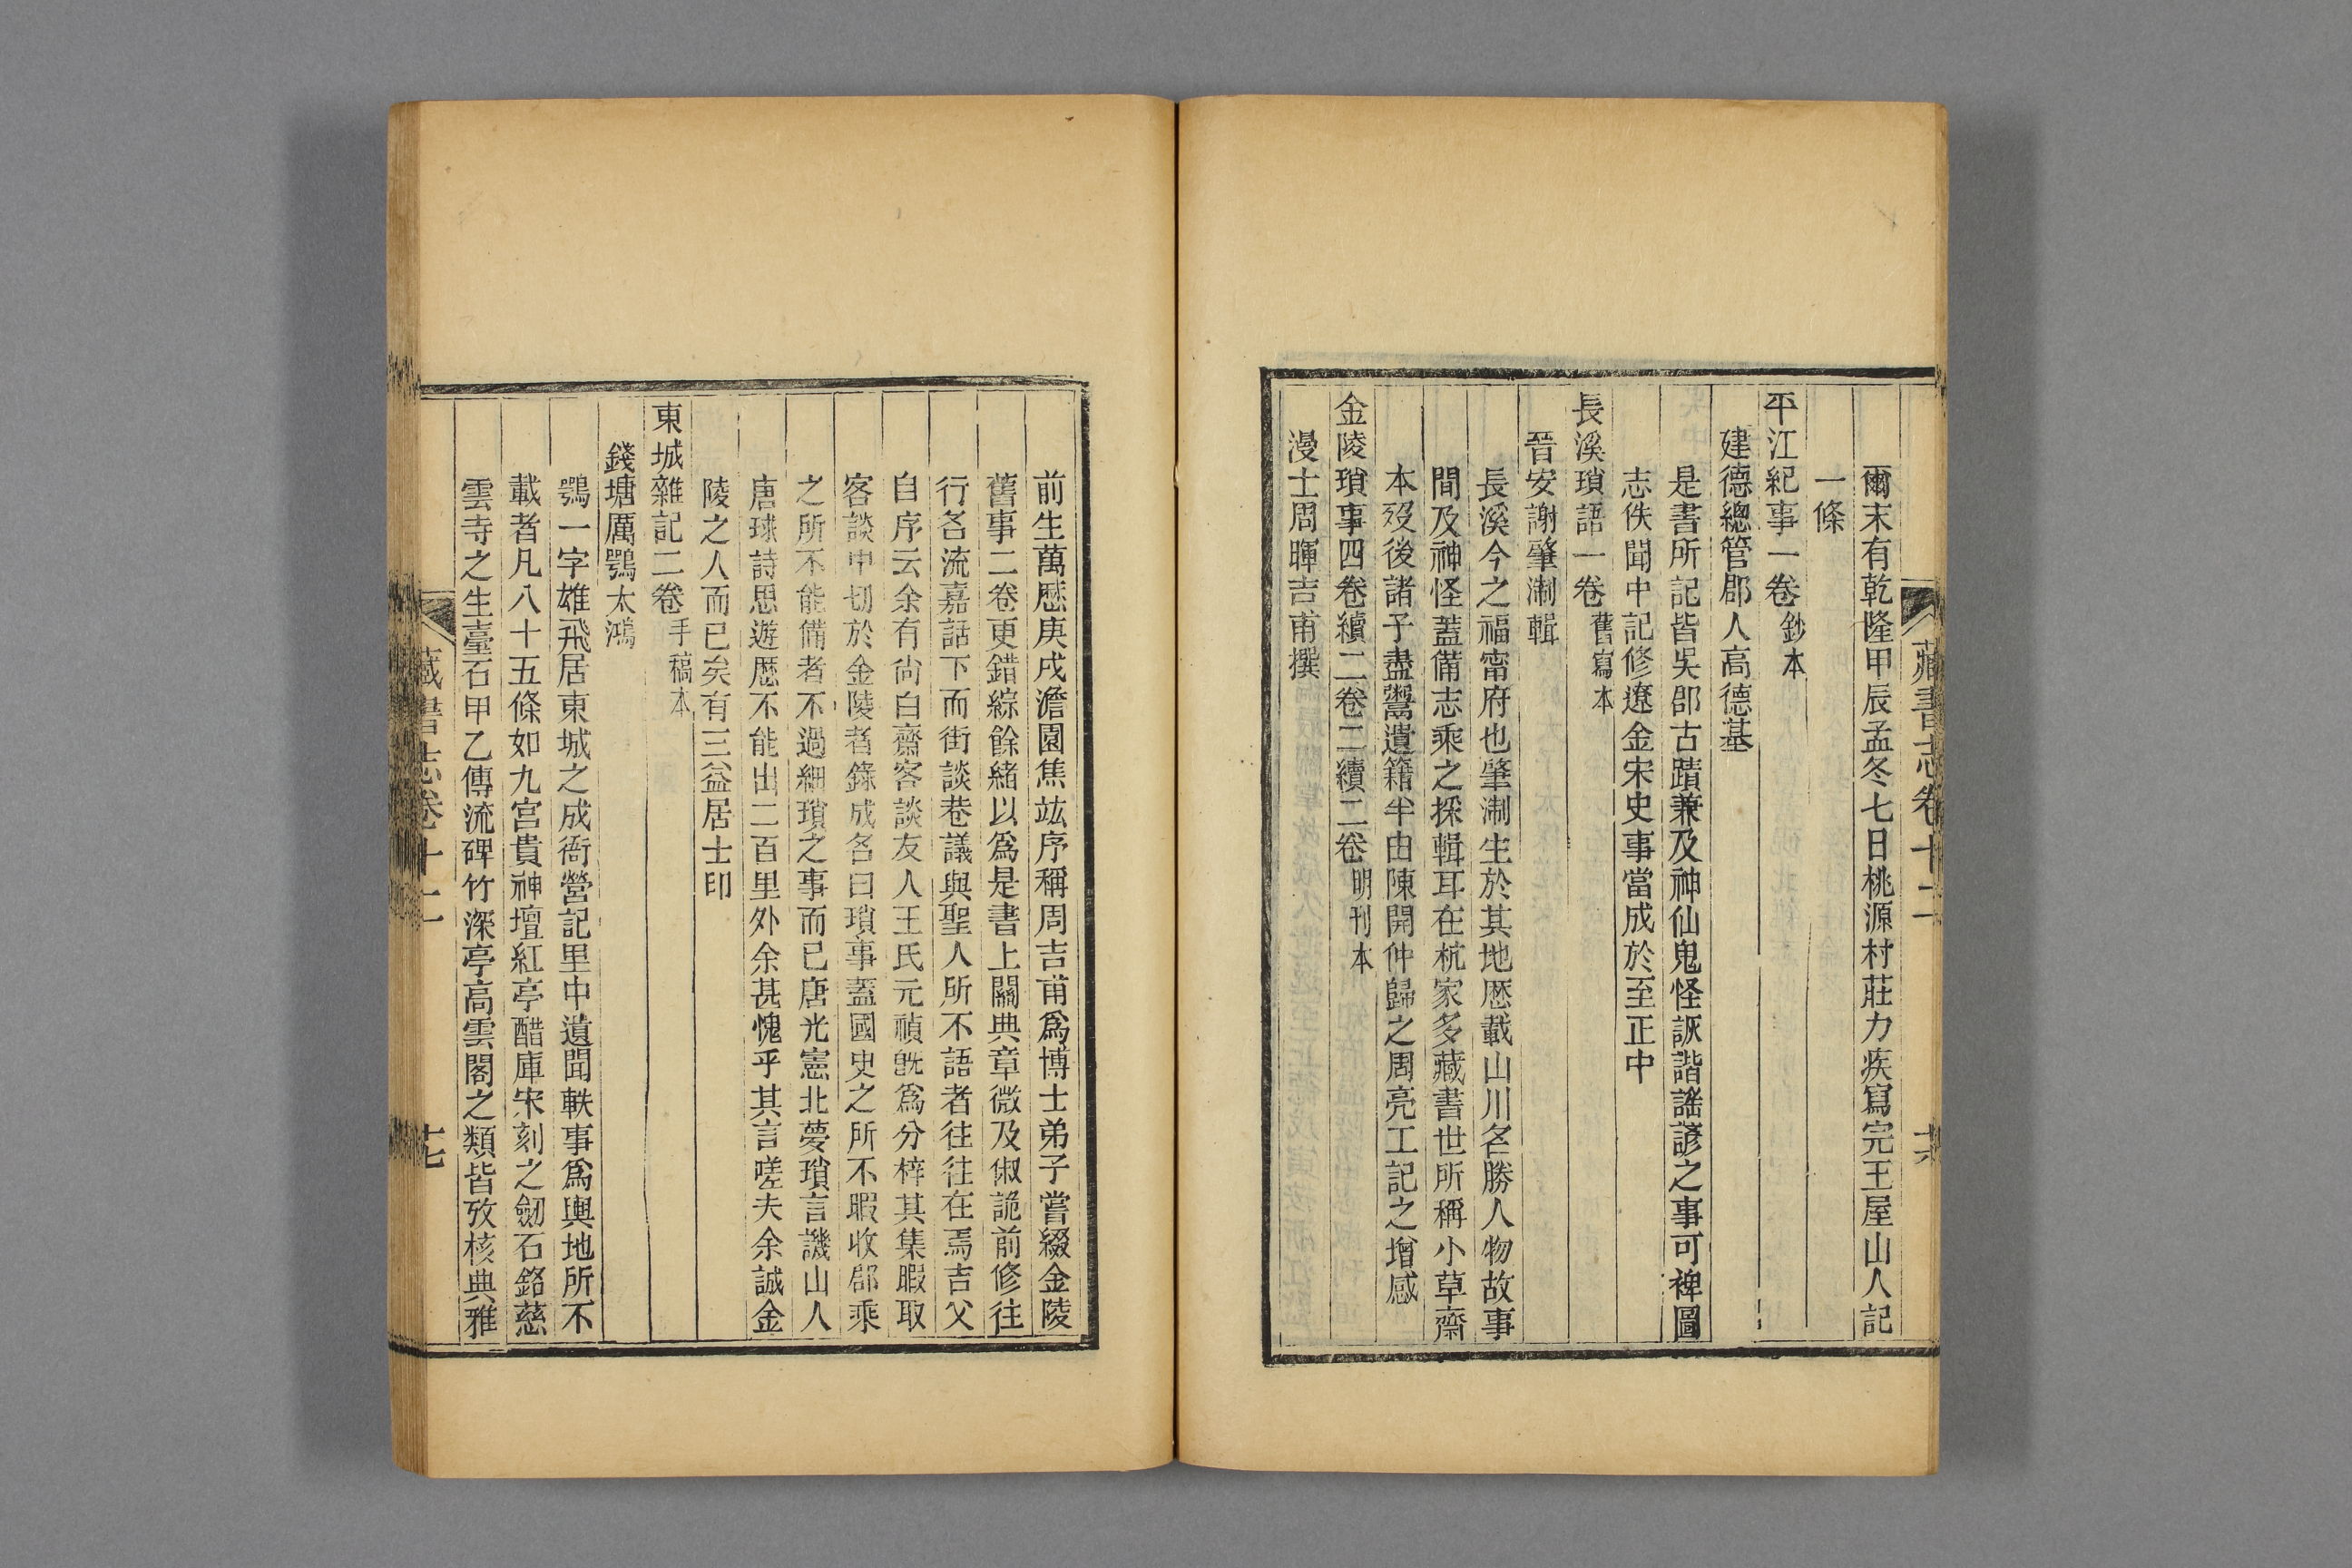 藏書志卷十二
爾末有乾隆甲辰孟冬七日桃源村莊力疾寫完王屋山人記
一條
平江紀事一卷鈔本
建德總管郡人高德基
是書所記皆吳郡古蹟兼及神仙鬼怪詼諧謠諺之事可裨圖
志佚聞中記修遼金宋史事當成於至正中
長溪瑣語一卷舊寫本
晉安謝肇淛輯
長溪今之福甯府也肇淛生於其地歷載山川名勝人物故事
間及神怪蓋備志乘之採輯耳在杭家多藏書世所稱小草齋
本歿後諸子盡鬻遺籍半由陳開仲歸之周亮工記之增感
金陵瑣事四卷續二卷二續二卷明刊本
漫士周暉吉甫撰
前生萬歷庚戌澹園焦竑序稱周吉甫爲博士弟子嘗綴金陵
舊事二卷更錯綜餘緒以爲是書上關典章微及俶詭前修往
行名流嘉話下而街談巷議與聖人所不語者往往在焉吉父
自序云余有尙白齋客談友人王氏元禎旣爲分梓其集暇取
客談中切於金陵者錄成名曰瑣事蓋國史之所不暇收郡乘
之所不能備者不過細瑣之事而已唐光憲北夢瑣言譏山人
唐球詩思遊歷不能出二百里外余甚愧乎其言嗟夫余誠金
陵之人而已矣有三益居士印
東城雜記二卷手稿本
錢塘厲鶚太鴻
鶚一字雄飛居東城之成衙營記里中遺聞軼事爲輿地所不
載者凡八十五條如九宮貴神壇紅亭醋庫宋刻之劒石銘慈
雲寺之生臺石甲乙傳流碑竹深亭高雲閣之類皆攷核典雅
藏書志卷十二
十七